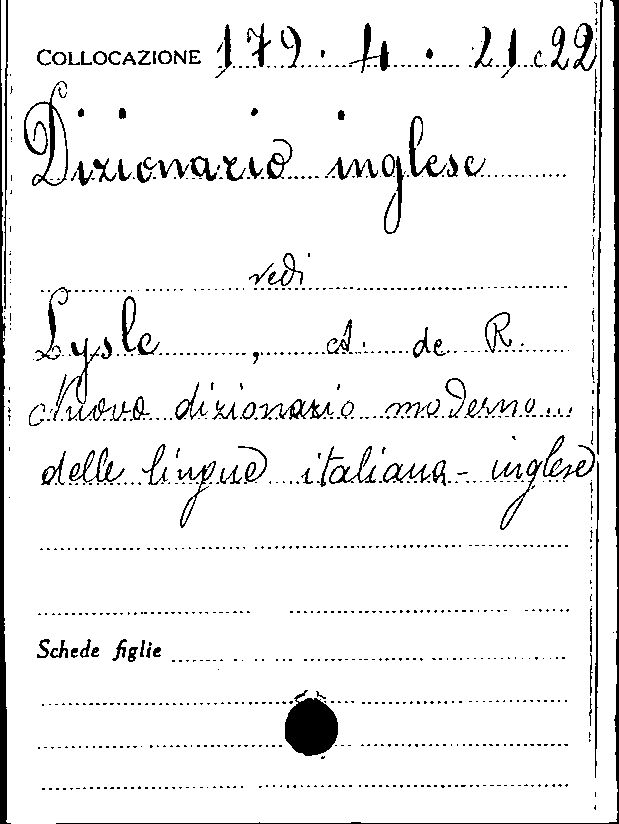 COLLOCAZIONE 179.4.21.22
Dizionario inglese
vedi
Lysle, A. de R.
Nuovo dizionario moderno...
delle lingue italiana-inglese
Schede figlie